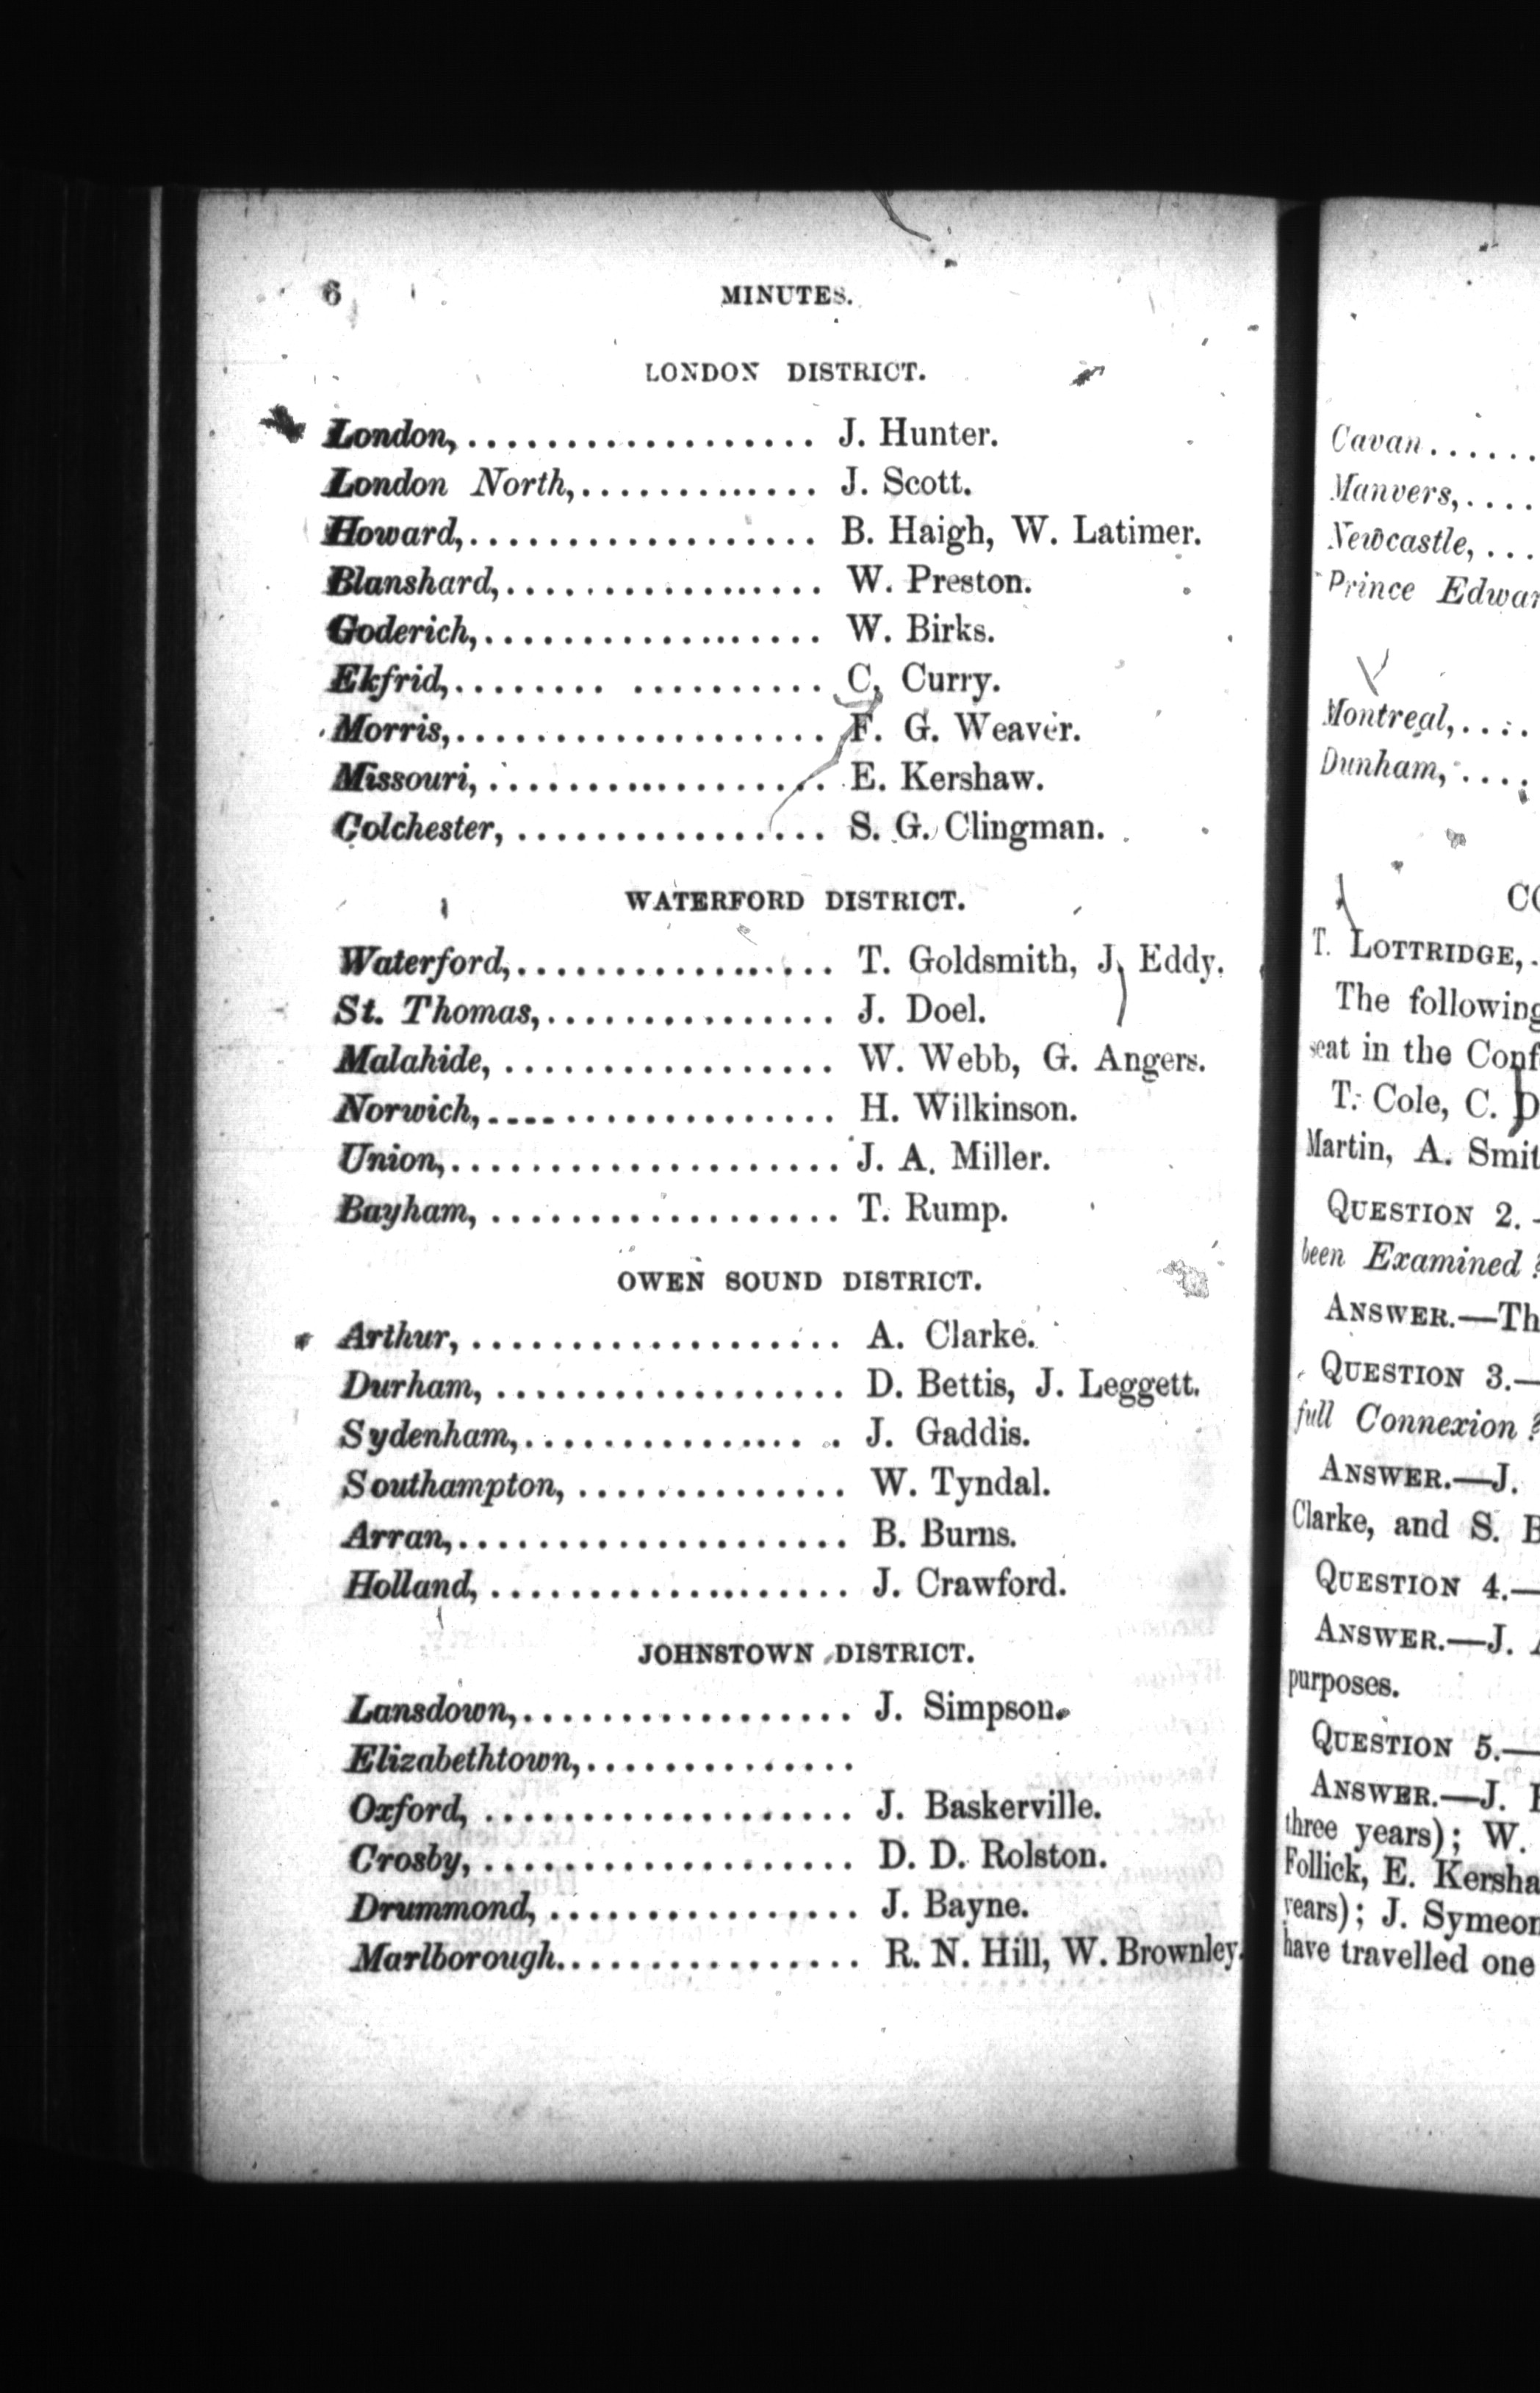 6 MINUTES.
LONDON DISTRICT.
London,.................. J. Hunter.
London North,............. J. Scott.
Howard,.................. B. Haigh, W. Latimer.
Blanshard,................ W. Preston.
Goderich,................. W. Birks.
Ekfrid,........ .......... C. Curry.
Morris,................... F. G. Weaver.
Missouri,................. E. Kershaw.
Colchester,................ S. G. Clingman.
WATERFORD DISTRICT.
Waterford,................ T. Goldsmith, J. Eddy.
St. Thomas,............... J. Doel.
Malahide,................. W. Webb, G. Angers.
Norwich,.................. H. Wilkinson.
Union,.................... J. A. Miller.
Bayham,.................. T. Rump.
OWEN SOUND DISTRICT.
Arthur,................... A. Clarke.
Durham,.................. D. Bettis, J. Leggett.
Sydenham,................ J. Gaddis.
Southampton,.............. W. Tyndal.
Arran,.................... B. Burns.
Holland,................... J. Crawford.
JOHNSTOWN DISTRICT.
Lansdown,................. J. Simpson.
Elizabethtown,..............
Oxford,................... J. Baskerville.
Crosby,................... D. D. Rolston.
Drummond,................ J. Bayne.
Marlborough................ R. N. Hill, W. Brownley.
Cavan......
Manvers,....
Newcastle,...
Prince
Montreal,....
Dunham,....
T. LOTTRIDGE,.
The following
seat in the
T. Cole, C.
Martin, A.
QUESTION 2.
been Examined ?
ANSWER.—
QUESTION 3.—
full Connexion ?
ANSWER.—J.
Clarke, and S.
QUESTION 4.—
ANSWER.—J.
purposes.
QUESTION 5.—
ANSWER.—J.
three years); W.
Follick, E.
years); J.
have travelled one